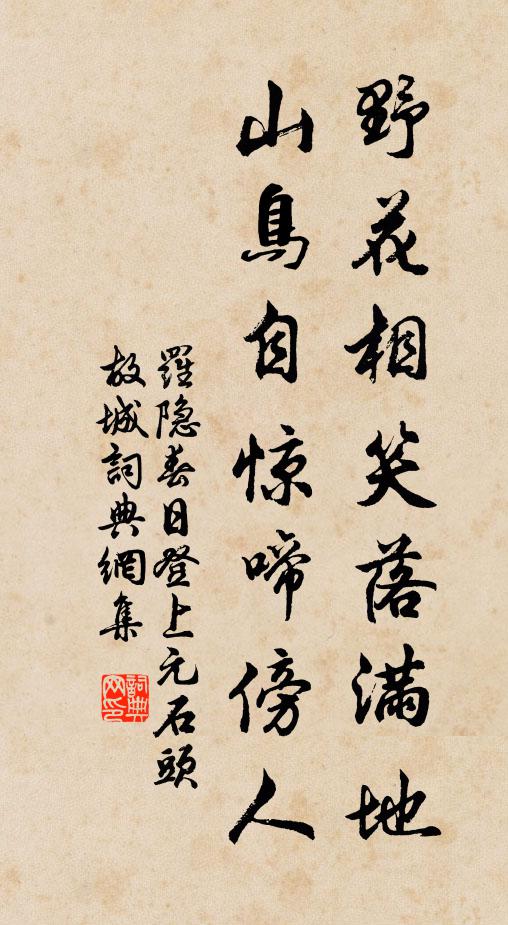 野花相笑落滿地
山鳥自惊啼傍人
羅隐春日登上元石頭
故城詞典網集
詞典網印